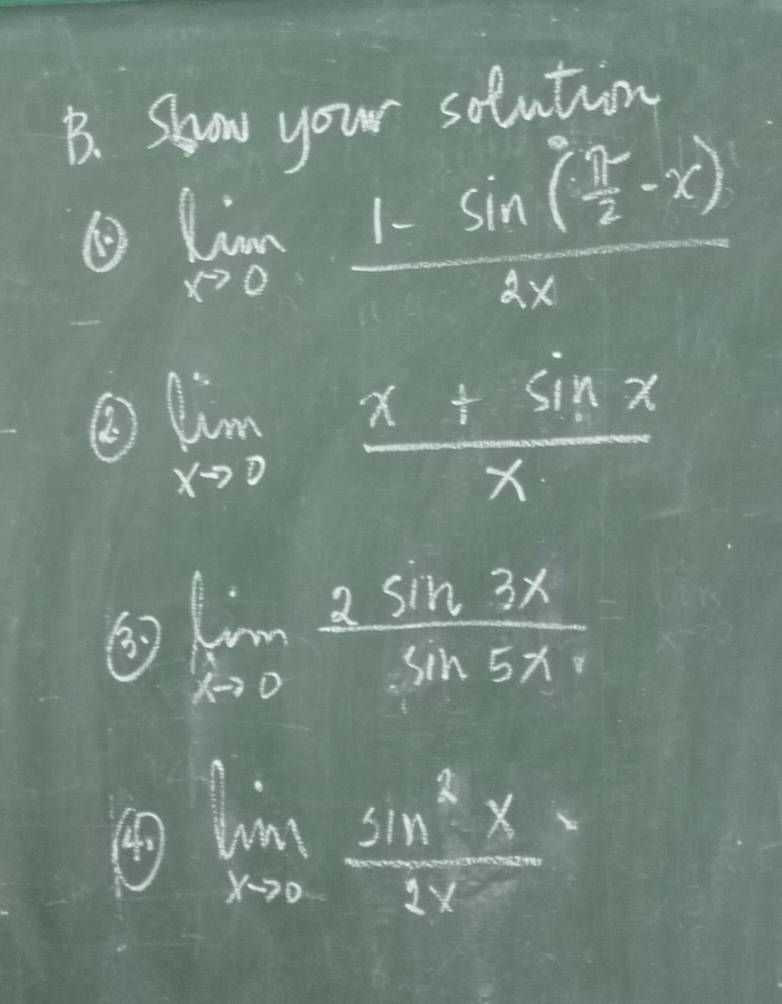 B. Show your solution
①. lim x→0 (1 - sin (π/2 - x)) / 2x
②. lim x→0 (x + sin x) / x
③. lim x→0 2 sin 3x / sin 5x
④. lim x→0 sin² x / 2x